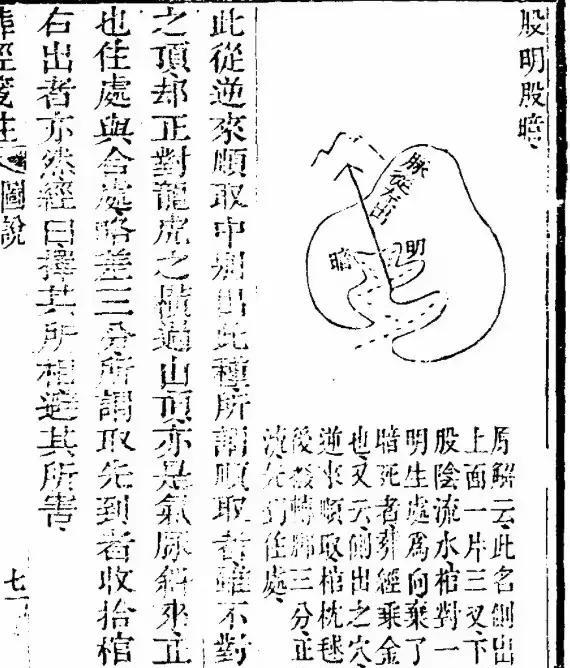 股明股暗
脉從左出
明
暗
原解云此名側出
上面一片三叉下
股陰流水棺對一
明生處為向乘了
暗死者葬經乘金
也又云側出之穴
逆來順取棺枕毬
後 轉腳三分正
先到住處
此從逆來順取中 出此種所謂順取者雖不對
之頂却正對龍虎之橫過山頂亦是氣脉斜來正
也住處與合處略差三分所謂取先到者收抬棺
右出者亦然經曰擇其所相避其所害
葬經箋註 圖說
七